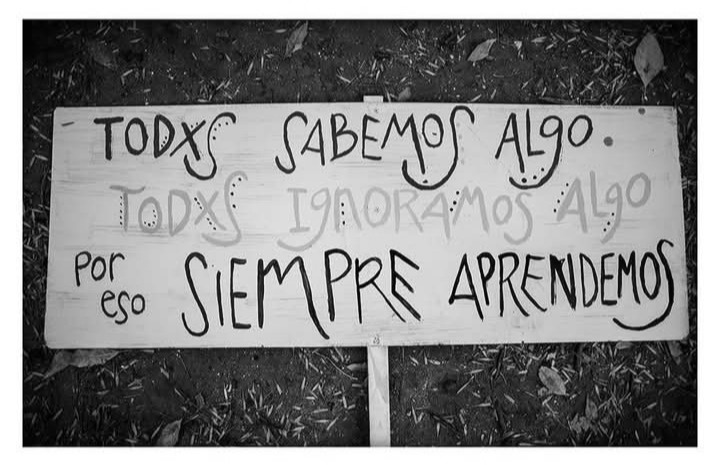 TODXS SABEMOS ALgO.
TODXS IgNORAMOS ALgO
Por eso SIEMPRE APRENDEMOS